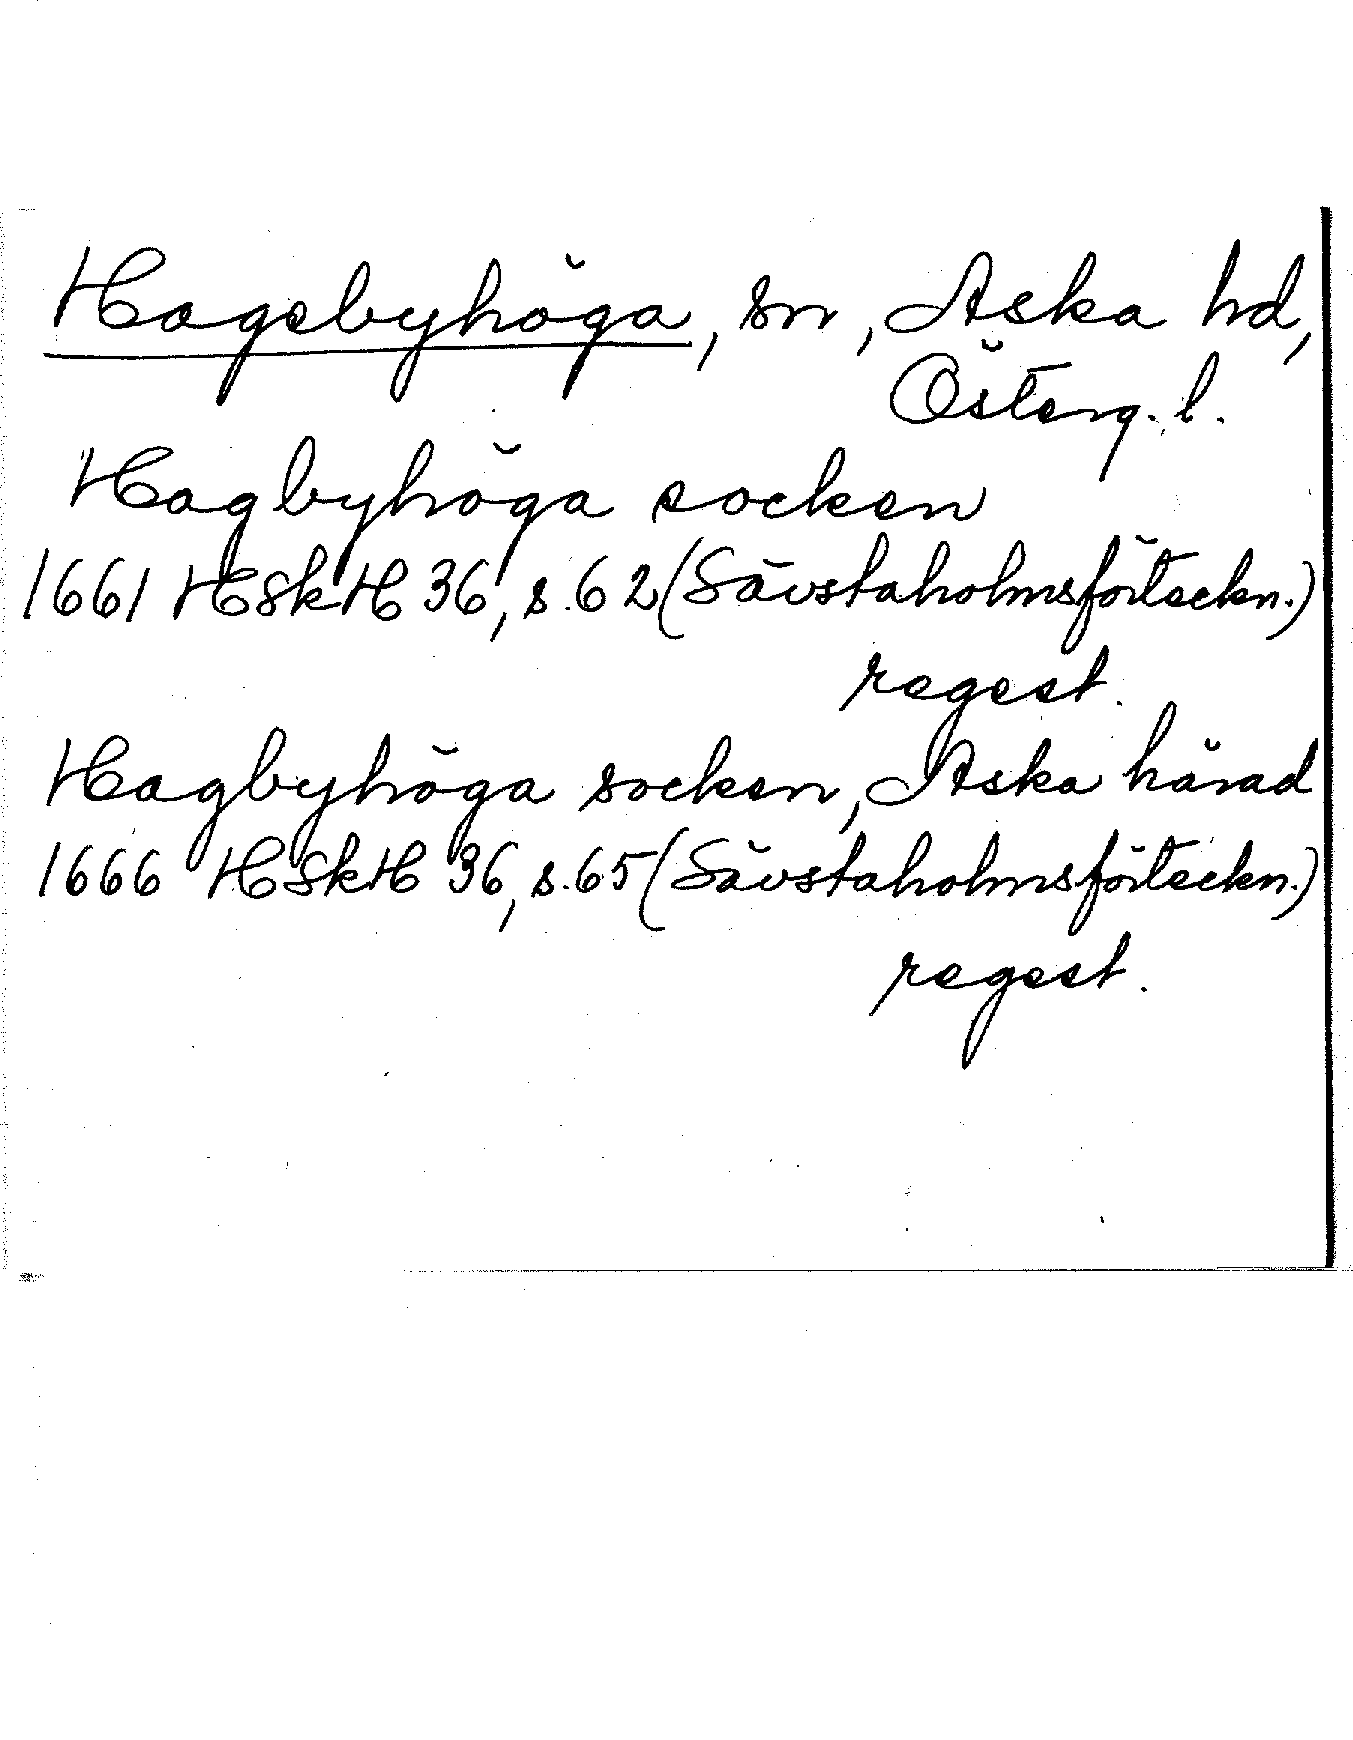 Hagebyhöga, sn, Aska hd,
Österg. l.
Hagbyhöga socken
1661 HSkH 36, s. 62 (Sävstaholmsförteckn.)
regest.
Hagbyhöga socken, Aska härad
1666 HSkH 36, s. 65 (Sävstaholmsförteckn.)
regest.